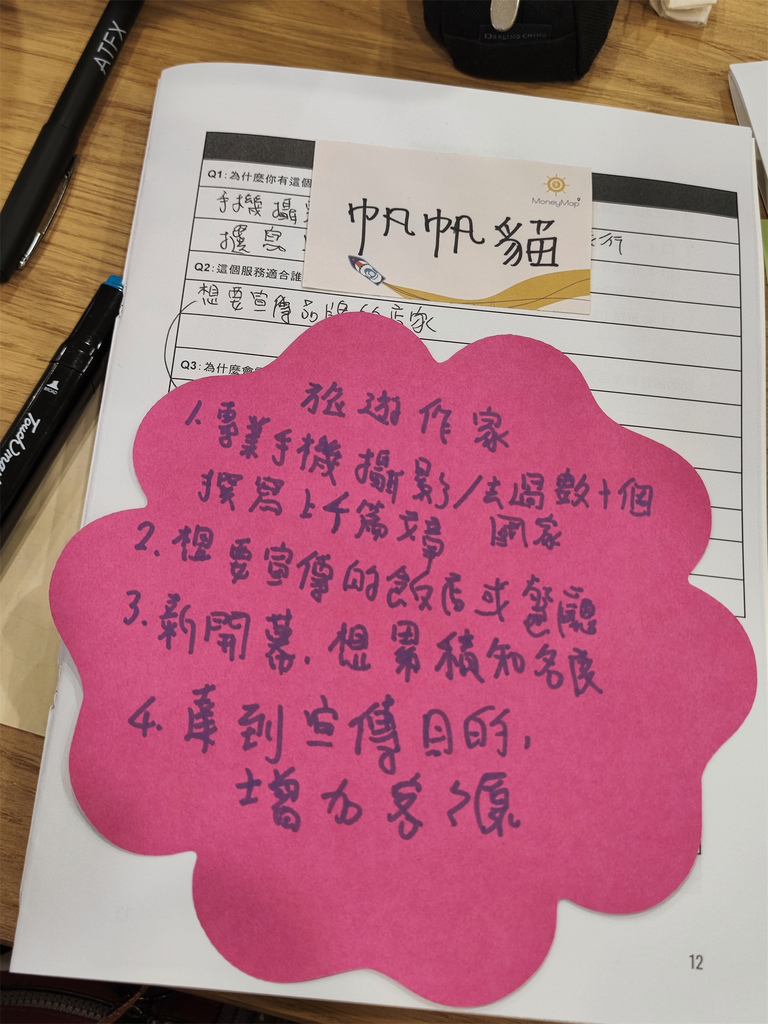 ATFX
DEALING CHING
MoneyMap
帆帆貓
Q1:為什麼你有這個
手機攝
撰寫
行
Q2:這個服務適合誰
想要宣傳品牌的店家
Q3:為什麼會
旅遊作家
1.專業手機攝影/去過數十個
撰寫上千篇文章 國家
2.想要宣傳的飯店或餐廳
3.新開幕.想累積知名度
4.達到宣傳目的,
增加客源
12